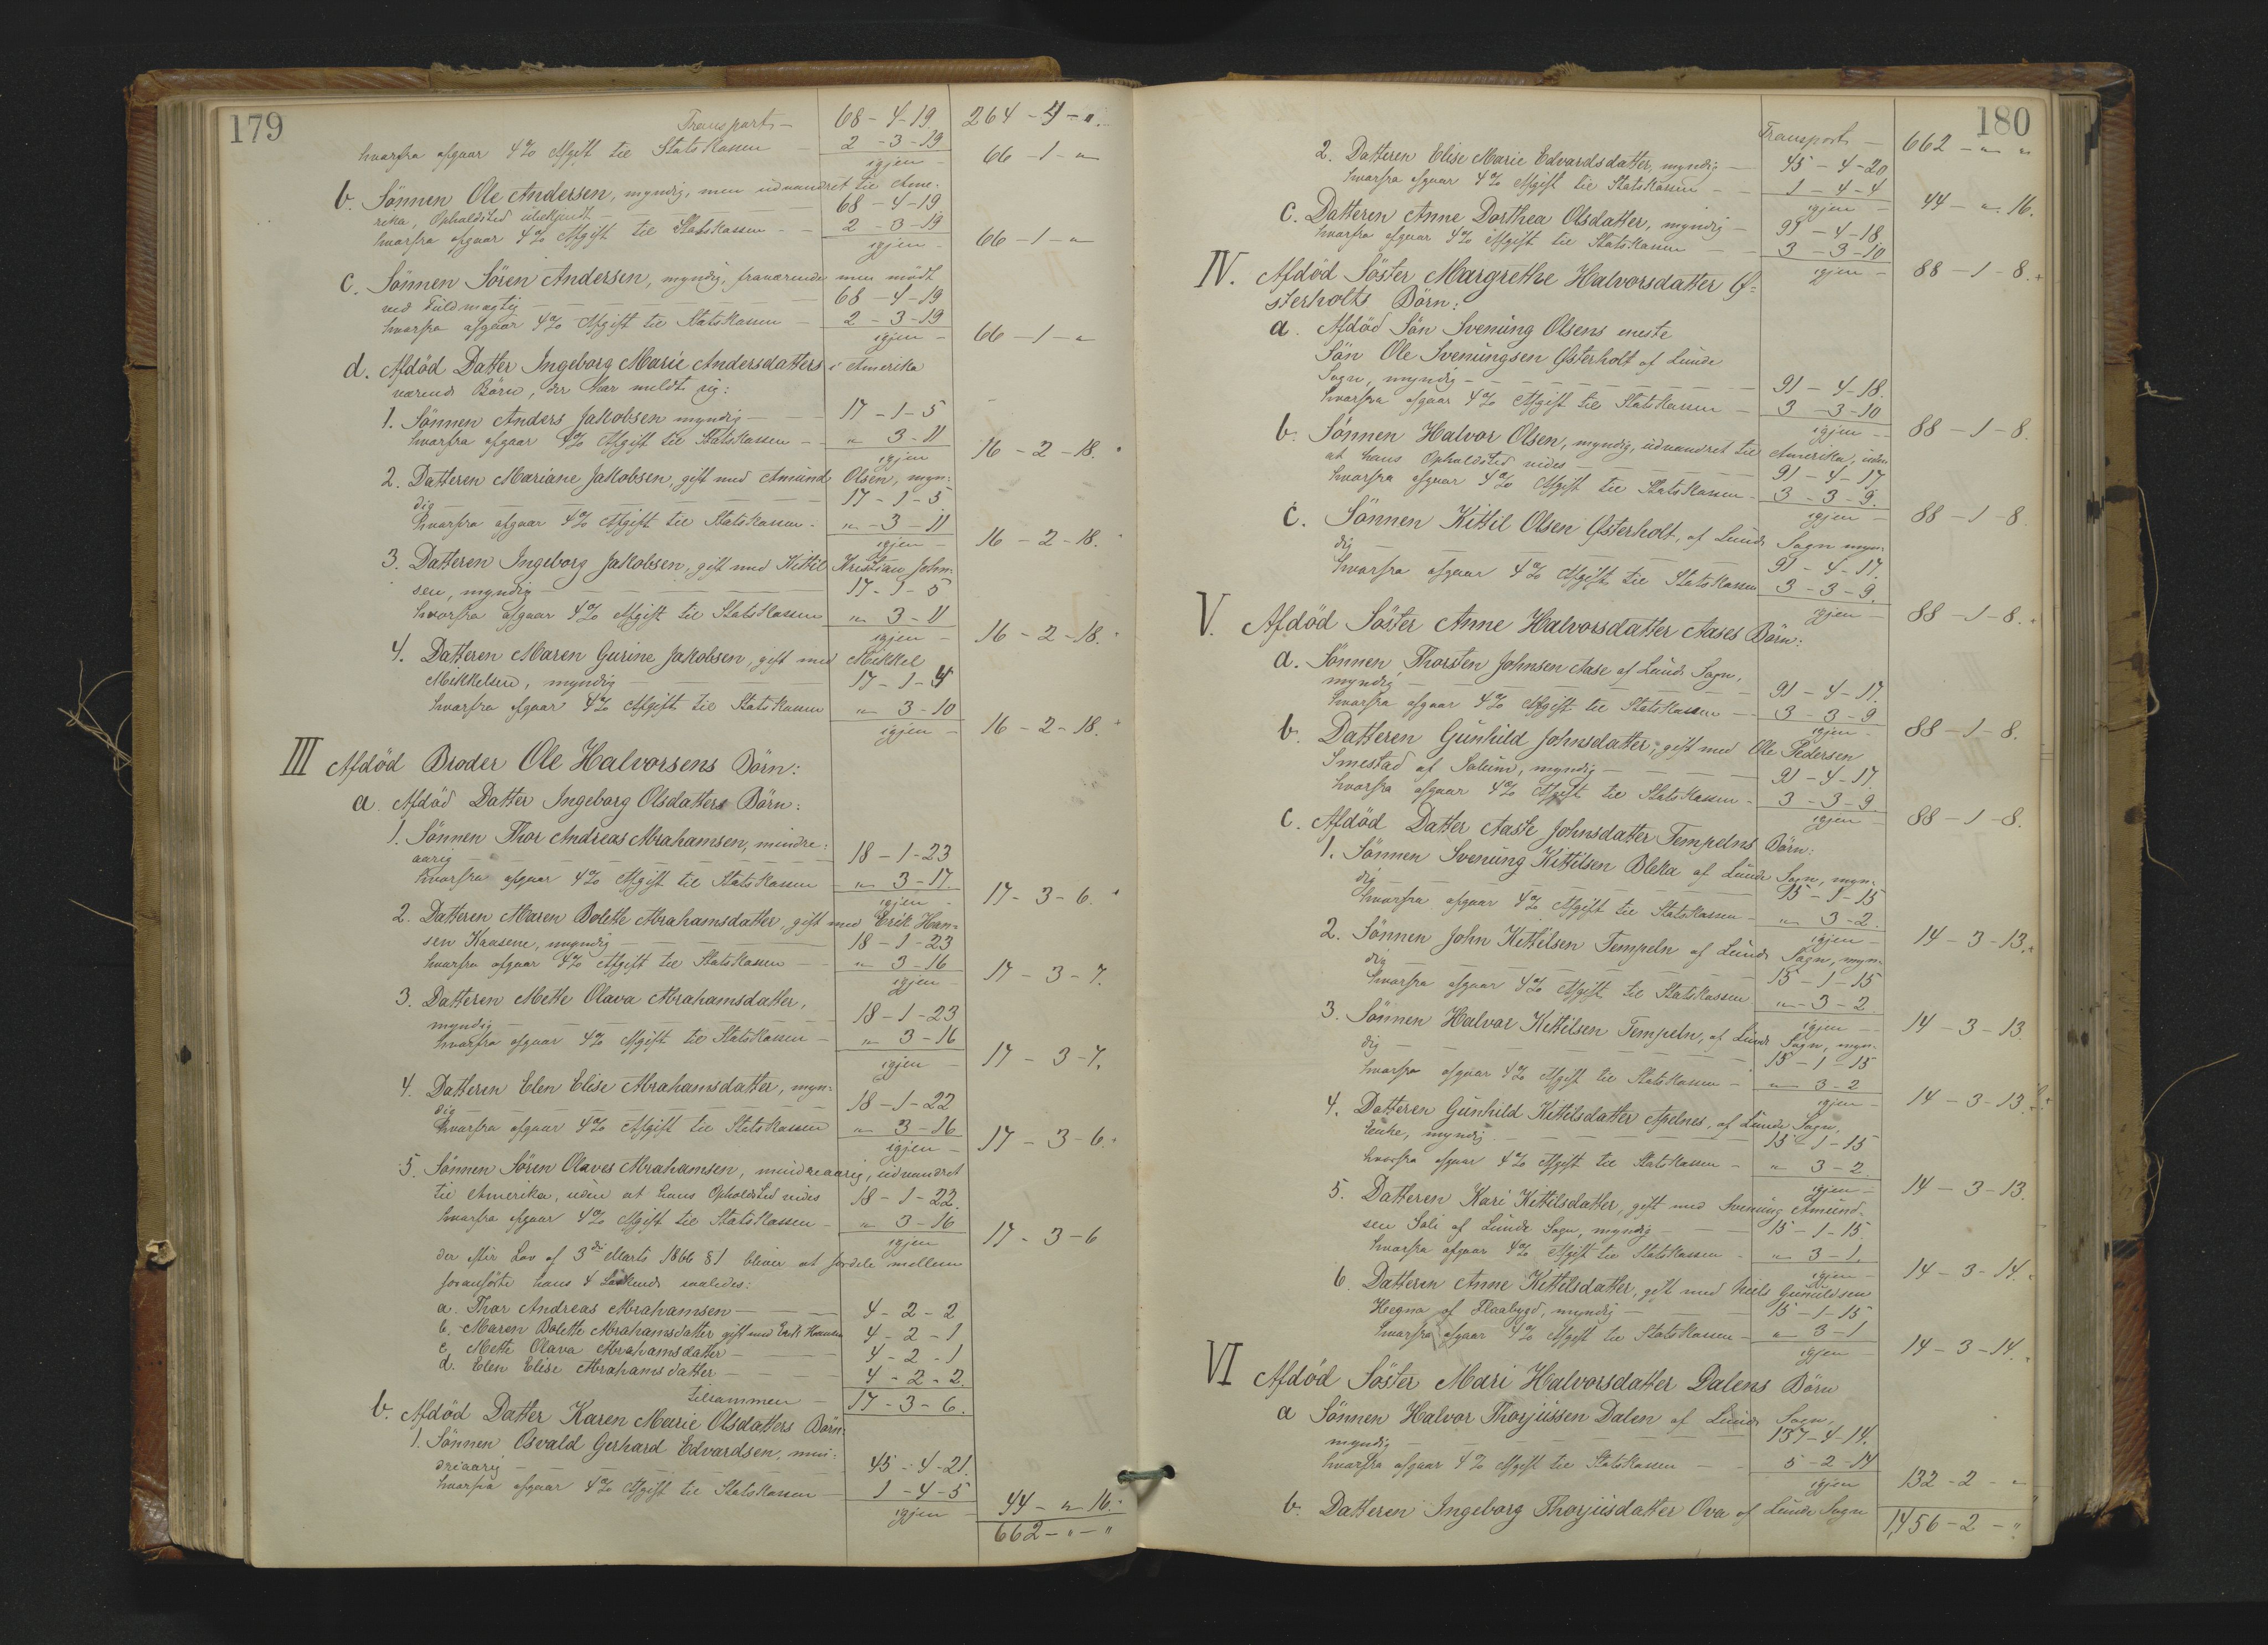 179
Transport — 68 - 4 - 19 264 - 4 - "
hvorfra afgaar 4% Afgift til Statskassen — 2 - 3 - 19
igjen — 66 - 1 - "
b. Sönnen Ole Andersen, myndig, men udvandret til Ame-
rika, Opholdsted übekjendt — 68 - 4 - 19
hvorfra afgaar 4% Afgift til Statskassen — 2 - 3 - 19
igjen — 66 - 1 - "
c. Sönnen Sören Andersen, myndig, fraværende men mödt
ved Füldmægtig — 68 - 4 - 19
hvorfra afgaar 4% Afgift til Statskassen — 2 - 3 - 19
igjen — 66 - 1 - "
d. Afdöd Datter Ingeborg Marie Andersdatters i Amerika
værende Börn, der har meldt sig:
1. Sönnen Anders Jakobsen myndig — 17 - 1 - 5
hvorfra afgaar 4% Afgift til Statskassen — " 3 - 11
igjen 16 - 2 - 18.
2. Datteren Mariane Jakobsen, gift med Amünd Olsen, myn-
dig — 17 - 1 - 5
hvorfra afgaar 4% Afgift til Statskassen — " - 3 - 11
igjen — 16 - 2 - 18.
3. Datteren Ingeborg Jakobsen, gift med Kittil Kristian John-
sen, myndig — 17 - 1 - 5
hvorfra afgaar 4% Afgift til Statskassen " 3 - 11
igjen — 16 - 2 - 18.
4. Datteren Maren Gurine Jakobsen, gift med Mikkel
Mikkelsen, myndig — 17 - 1 - 4
hvorfra afgaar 4% Afgift til Statskassen " 3 - 10
igjen — 16 - 2 - 18.
III Afdöd Broder Ole Halvorsens Börn:
a. Afdöd Datter Ingeborg Olsdatters Börn:
1. Sönnen Thor Andreas Abrahamsen, mindre-
aarig — 18 - 1 - 23
hvorfra afgaar 4% Afgift til Statskassen " 3 - 17.
igjen — 17 - 3 - 6.
2. Datteren Maren Bolette Abrahamsdatter, gift med Erik Han-
sen Kaasene, myndig — 18 - 1 - 23
hvorfra afgaar 4% Afgift til Statskassen — " 3 - 16
igjen — 17 - 3 - 7.
3. Datteren Mette Olava Abrahamsdatter,
myndig — 18 - 1 - 23
hvorfra afgaar 4% Afgift til Statskassen — " 3 - 16
igjen — 17 - 3 - 7.
4. Datteren Elen Elise Abrahamsdatter, myn-
dig — 18 - 1 - 22
hvorfra afgaar 4% Afgift til Statskassen " 3 - 16
igjen — 17 - 3 - 6.
5. Sönnen Sören Olaves Abrahamsen, mindreaarig, üdvandret
til Amerika, üden at hans Opholdsted vides 18 - 1 - 22.
hvorfra afgaar 4% Afgift til Statskassen — " 3 - 16
igjen 17 - 3 - 6
der efter Lov af 3die Marts 1866 § 1 bliver at fordele mellem
foranförte hans 4 Sødskende saaledes:
a. Thor Andreas Abrahamsen — 4 - 2 - 2
b. Maren Bolette Abrahamsdatter gift med Erik Hansen 4 - 2 - 1
c. Mette Olava Abrahamsdatter — 4 - 2 - 1
d. Elen Elise Abrahamsdatter — 4 - 2 - 2.
tilsammen — 17 - 3 - 6.
b. Afdöd Datter Karen Marie Olsdatters Börn:
1. Sönnen Osvald Gerhard Edvardsen, min-
dreaarig — 45 - 4 - 21.
hvorfra afgaar 4% Afgift til Statskassen — 1 - 4 - 5
igjen — 44 - " 16.
662 - " - "
180
Transport — 662 - " "
2. Datteren Elise Marie Edvardsdatter, myndig — 45 - 4 - 20
hvorfra afgaar 4% Afgift til Statskassen — 1 - 4 - 4
igjen — 44 - " 16.
c. Datteren Anne Dorthea Olsdatter, myndig — 91 - 4 - 18
hvorfra afgaar 4% Afgift til Statskassen — 3 - 3 - 10
igjen — 88 - 1 - 8.
IV. Afdöd Söster Margrethe Halvorsdatter Ø-
sterholts Börn:
a. Afdöd Sön Svenüng Olsens eneste
Sön Ole Svenüngsen Østerholt af Lünde
Sogn, myndig — 91 - 4 - 18.
hvorfra afgaar 4% Afgift til Statskassen — 3 - 3 - 10
igjen — 88 - 1 - 8.
b. Sönnen Halvor Olsen, myndig, üdvandret til Amerika, üden
at hans Opholdsted vides — 91 - 4 - 17
hvorfra afgaar 4% Afgift til Statskassen — 3 - 3 - 9.
igjen — 88 - 1 - 8
c. Sönnen Kittil Olsen Østerholt, af Lünde Sogn myn-
dig — 91 - 4 - 17.
hvorfra afgaar 4% Afgift til Statskassen 3 - 3 - 9.
igjen — 88 - 1 - 8.
V. Afdöd Söster Anne Halvorsdatter Aases Börn:
a. Sönnen Thorsten Johnsen Aase af Lünde Sogn,
myndig — 91 - 4 - 17.
hvorfra afgaar 4% Afgift til Statskassen — 3 - 3 - 9
igjen — 88 - 1 - 8.
b. Datteren Günhild Johnsdatter, gift med Ole Pedersen
Smestad af Solüm, myndig — 91 - 4 - 17.
hvorfra afgaar 4% Afgift til Statskassen — 3 - 3 - 9.
igjen — 88 - 1 - 8.
c. Afdöd Datter Aaste Johnsdatter Tempelns Börn:
1. Sönnen Svenüng Kittilsen Bleka af Lünde Sogn, myn-
dig — 15 - 1 - 15
hvorfra afgaar 4% Afgift til Statskassen — " 3 - 2.
igjen — 14 - 3 - 13.
2. Sönnen John Kittilsen Tempeln af Lünde Sogn, myn-
dig — 15 - 1 - 15
hvorfra afgaar 4% Afgift til Statskassen " - 3 - 2
igjen — 14 - 3 - 13
3. Sönnen Halvor Kittilsen Tempeln, af Lünde Sogn, myn-
dig — 15 - 1 - 15
hvorfra afgaar 4% Afgift til Statskassen — " 3 - 2
igjen — 14 - 3 - 13.
4. Datteren Günhild Kittilsdatter Apelnes, af Lünde Sogn,
Enke, myndig — 15 - 1 - 15
hvorfra afgaar 4% Afgift til Statskassen — " 3 - 2
igjen — 14 - 3 - 13.
5. Datteren Kari Kittilsdatter, gift med Svenüng Amünd-
sen Soli af Lünde Sogn, myndig — 15 - 1 - 15
hvorfra afgaar 4% Afgift til Statskassen — " 3 - 1.
igjen — 14 - 3 - 14.
6. Datteren Anne Kittilsdatter, gift med Niels Gunuldsen
Hegna af Flaabygd, myndig — 15 - 1 - 15
hvorfra afgaar 4% Afgift til Statskassen — " 3 - 1
igjen — 14 - 3 - 14.
VI Afdöd Söster Mari Halvorsdatter Dalens Börn
a Sönnen Halvor Thorjüssen Dalen af Lünde Sogn,
myndig — 137 - 4 - 14.
hvorfra afgaar 4% Afgift til Statskassen — 5 - 2 - 14
igjen 132 - 2 - "
b. Datteren Ingeborg Thorjüsdatter Ova af Lünde Sogn
1,456 - 2 - "